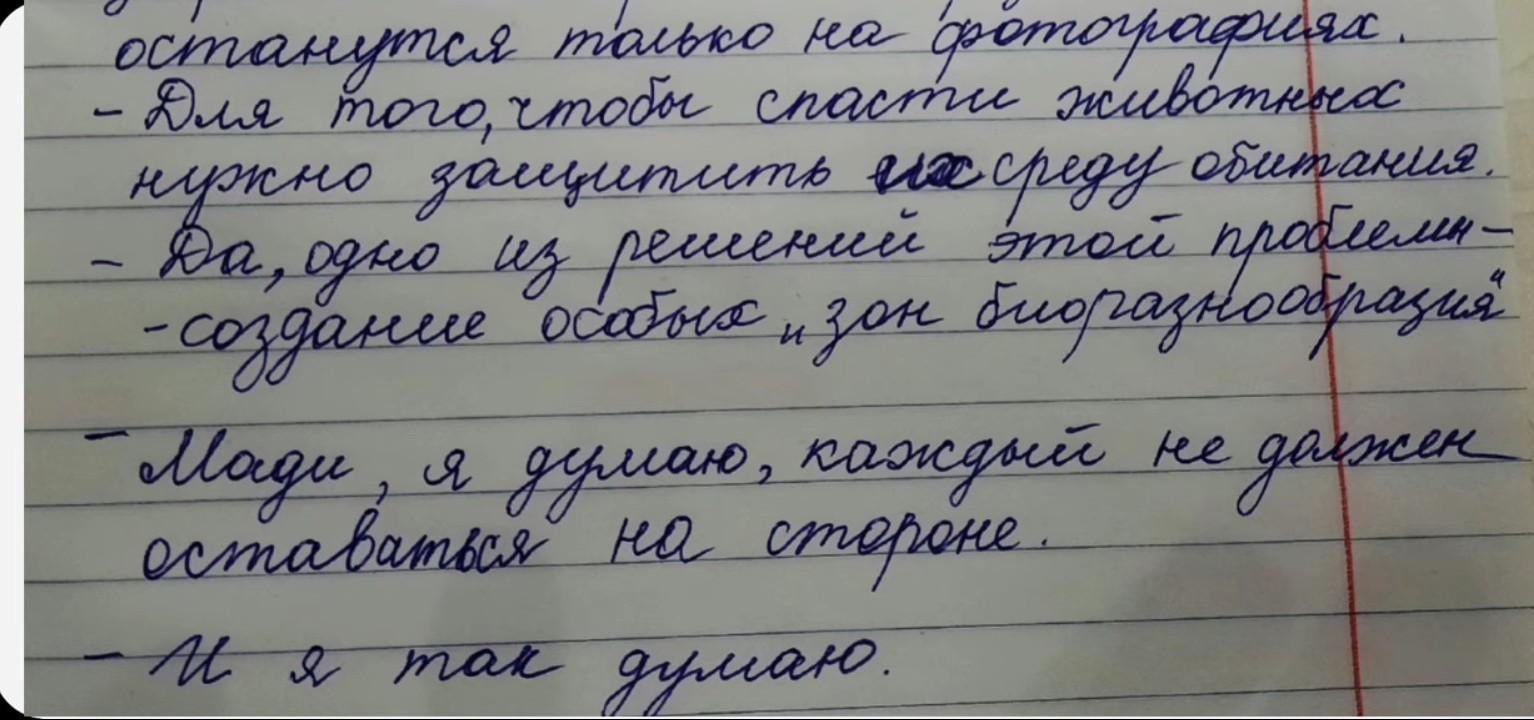 останутся только на фотографиях.
- Для того, чтобы спасти животных
нужно защитить их среду обитания.
- Да, одно из решений этой проблемы -
- создание особых „зон биоразнообразия"
- Мади, я думаю, каждый не должен
оставаться на стороне.
- И я так думаю.